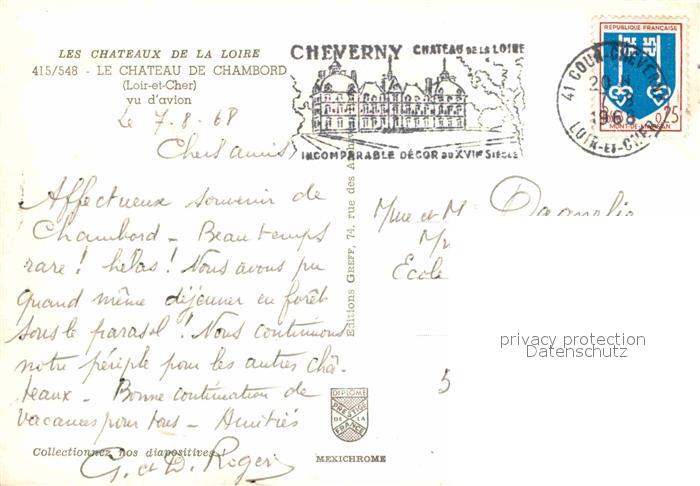 LES CHATEAUX DE LA LOIRE
415/548 - LE CHATEAU DE CHAMBORD
(Loir-et-Cher)
vu d'avion
Le 7-8-68
Chers amis,
Affectueux souvenir de
Chambord - Beau temps
rare! hélas! Nous avons pu
quand même déjeuner en forêt
sous le parasol! Nous continuons
notre périple pour les autres châ-
teaux - Bonne continuation de
vacances pour tous - Amitiés
G. et D. Roger
Collectionnez nos diapositives !
CHEVERNY CHATEAU DE LA LOIRE
INCOMPARABLE DÉCOR DU XVIIe SIÈCLE
41 COUR-CHEVERNY
1968
LOIR-ET-CHER
REPUBLIQUE FRANCAISE
0,25
MONT-DE-MARSAN
Editions GREFF, 74, rue des
Mme et M.
Ecole
5
DIPLOME
PRESTIGE
DE LA
FRANCE
MEXICHROME
privacy protection
Datenschutz